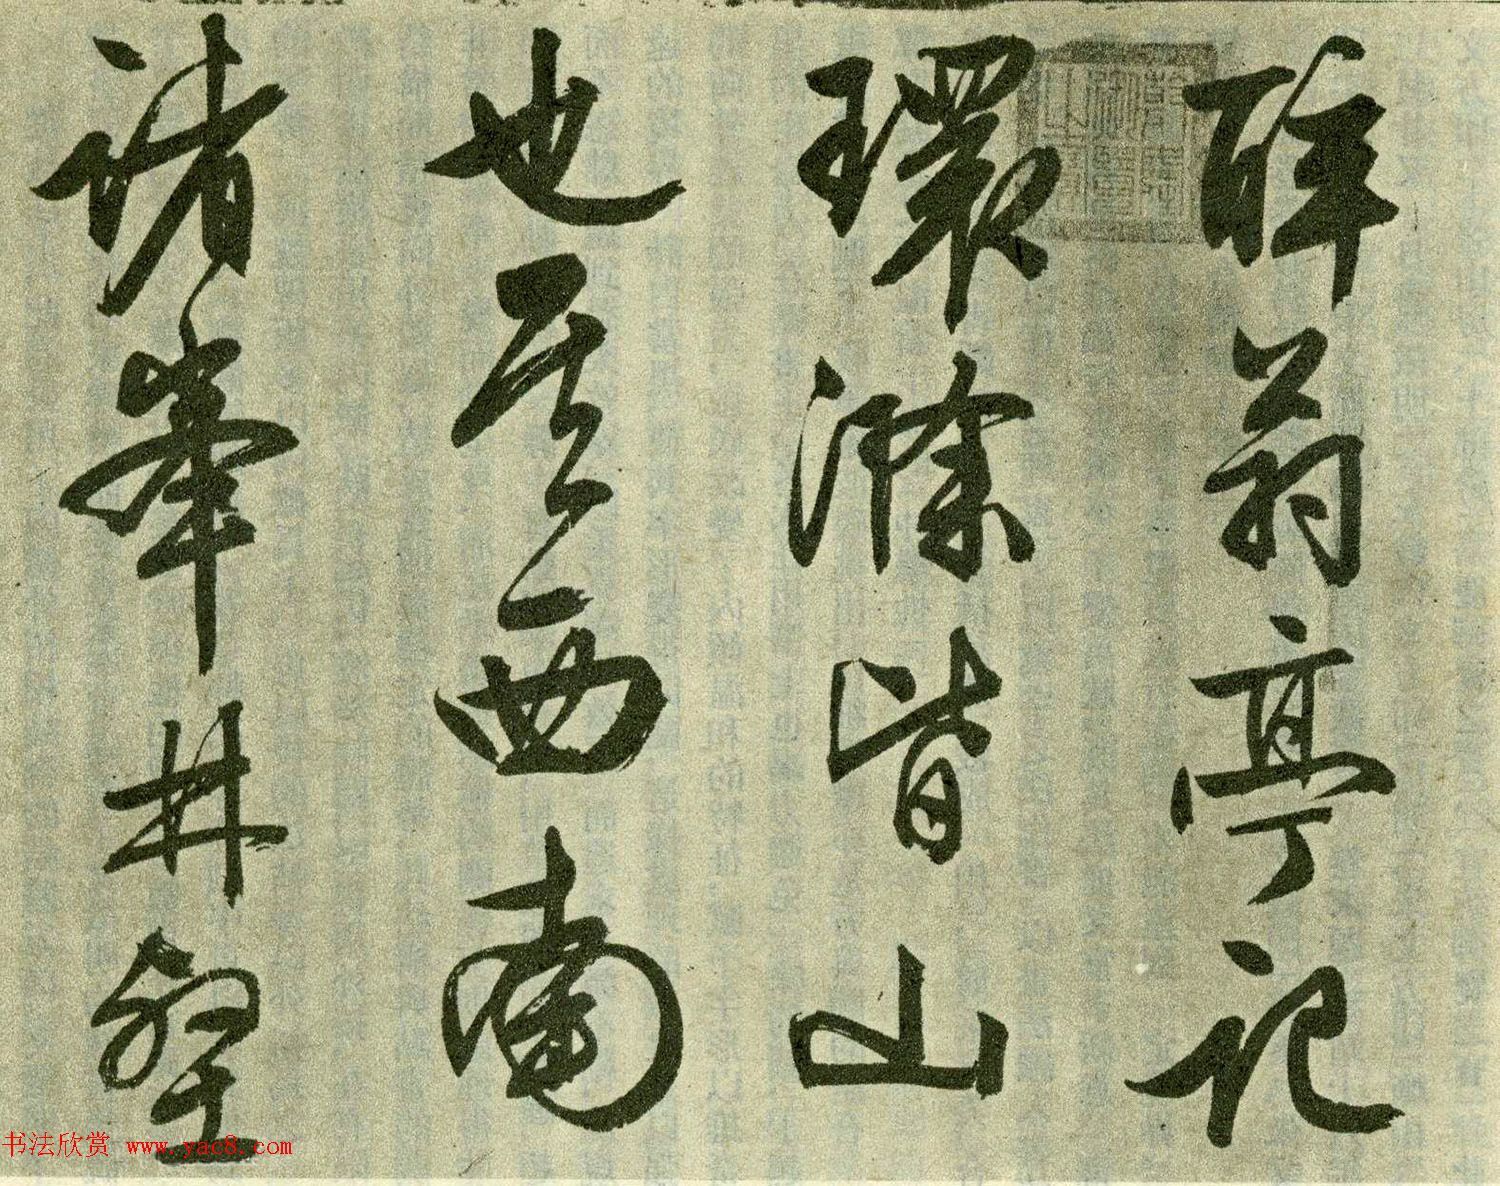 醉翁亭記
環滁皆山
也其西南
諸峯林壑
书法欣赏 www.yac8.com